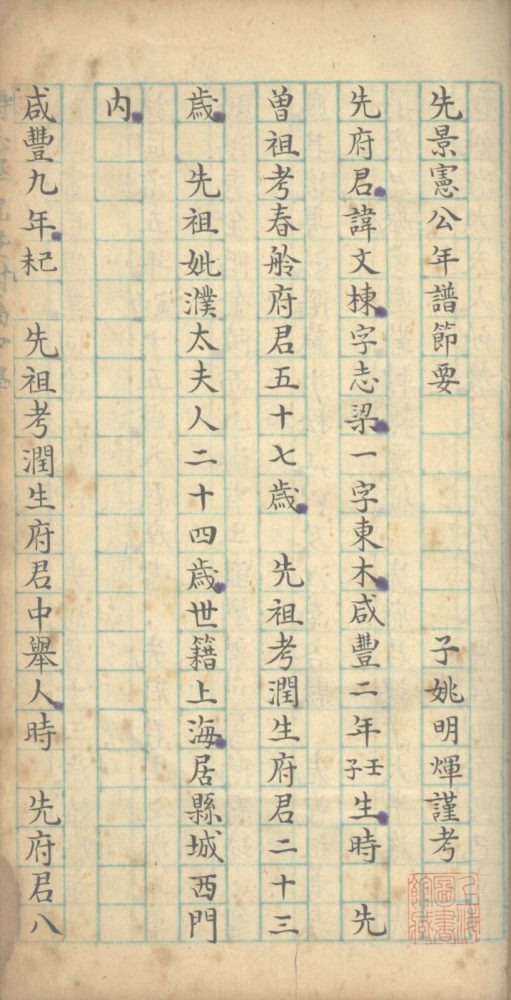 先景憲公年譜節要　子姚明煇謹考
先府君諱文棟字志梁一字東木咸豐二年壬子生時　先
曾祖考春舲府君五十七歲　先祖考潤生府君二十三
歲　先祖妣濮太夫人二十四歲世籍上海居縣城西門
內
咸豐九年杞　先祖考潤生府君中舉人時　先府君八
上海圖書館藏